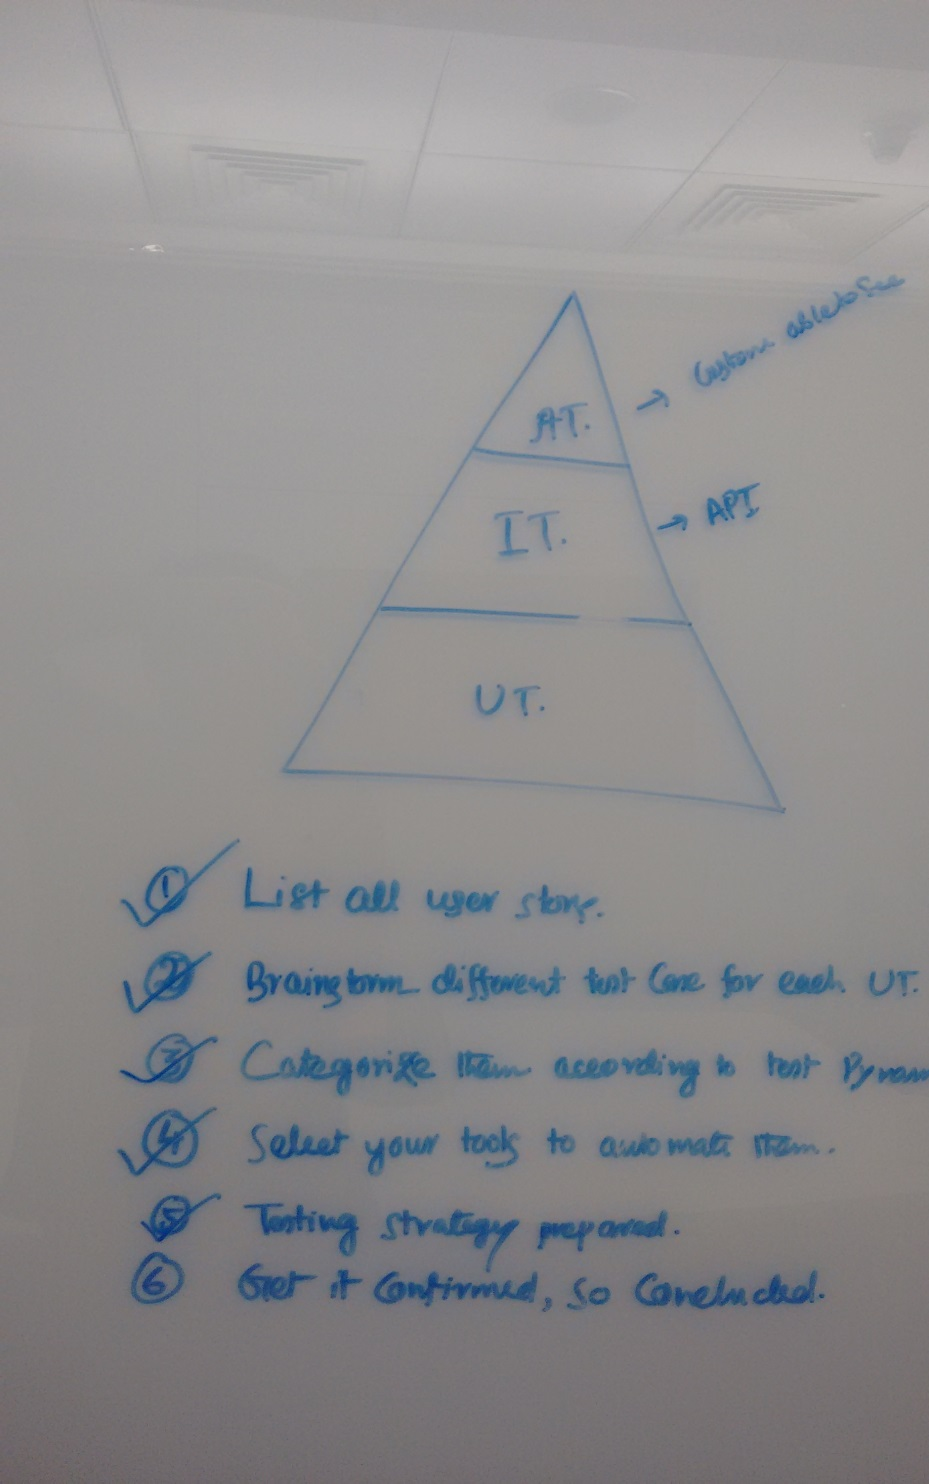 Custom able to See
AT.
API
IT.
UT.
1 List all user story.
2 Brainstorm different test Case for each UT.
3 Categorize them according to test Pyram
4 Select your tools to automate them.
5 Testing strategy prepared.
6 Get it Confirmed, so Concluded.